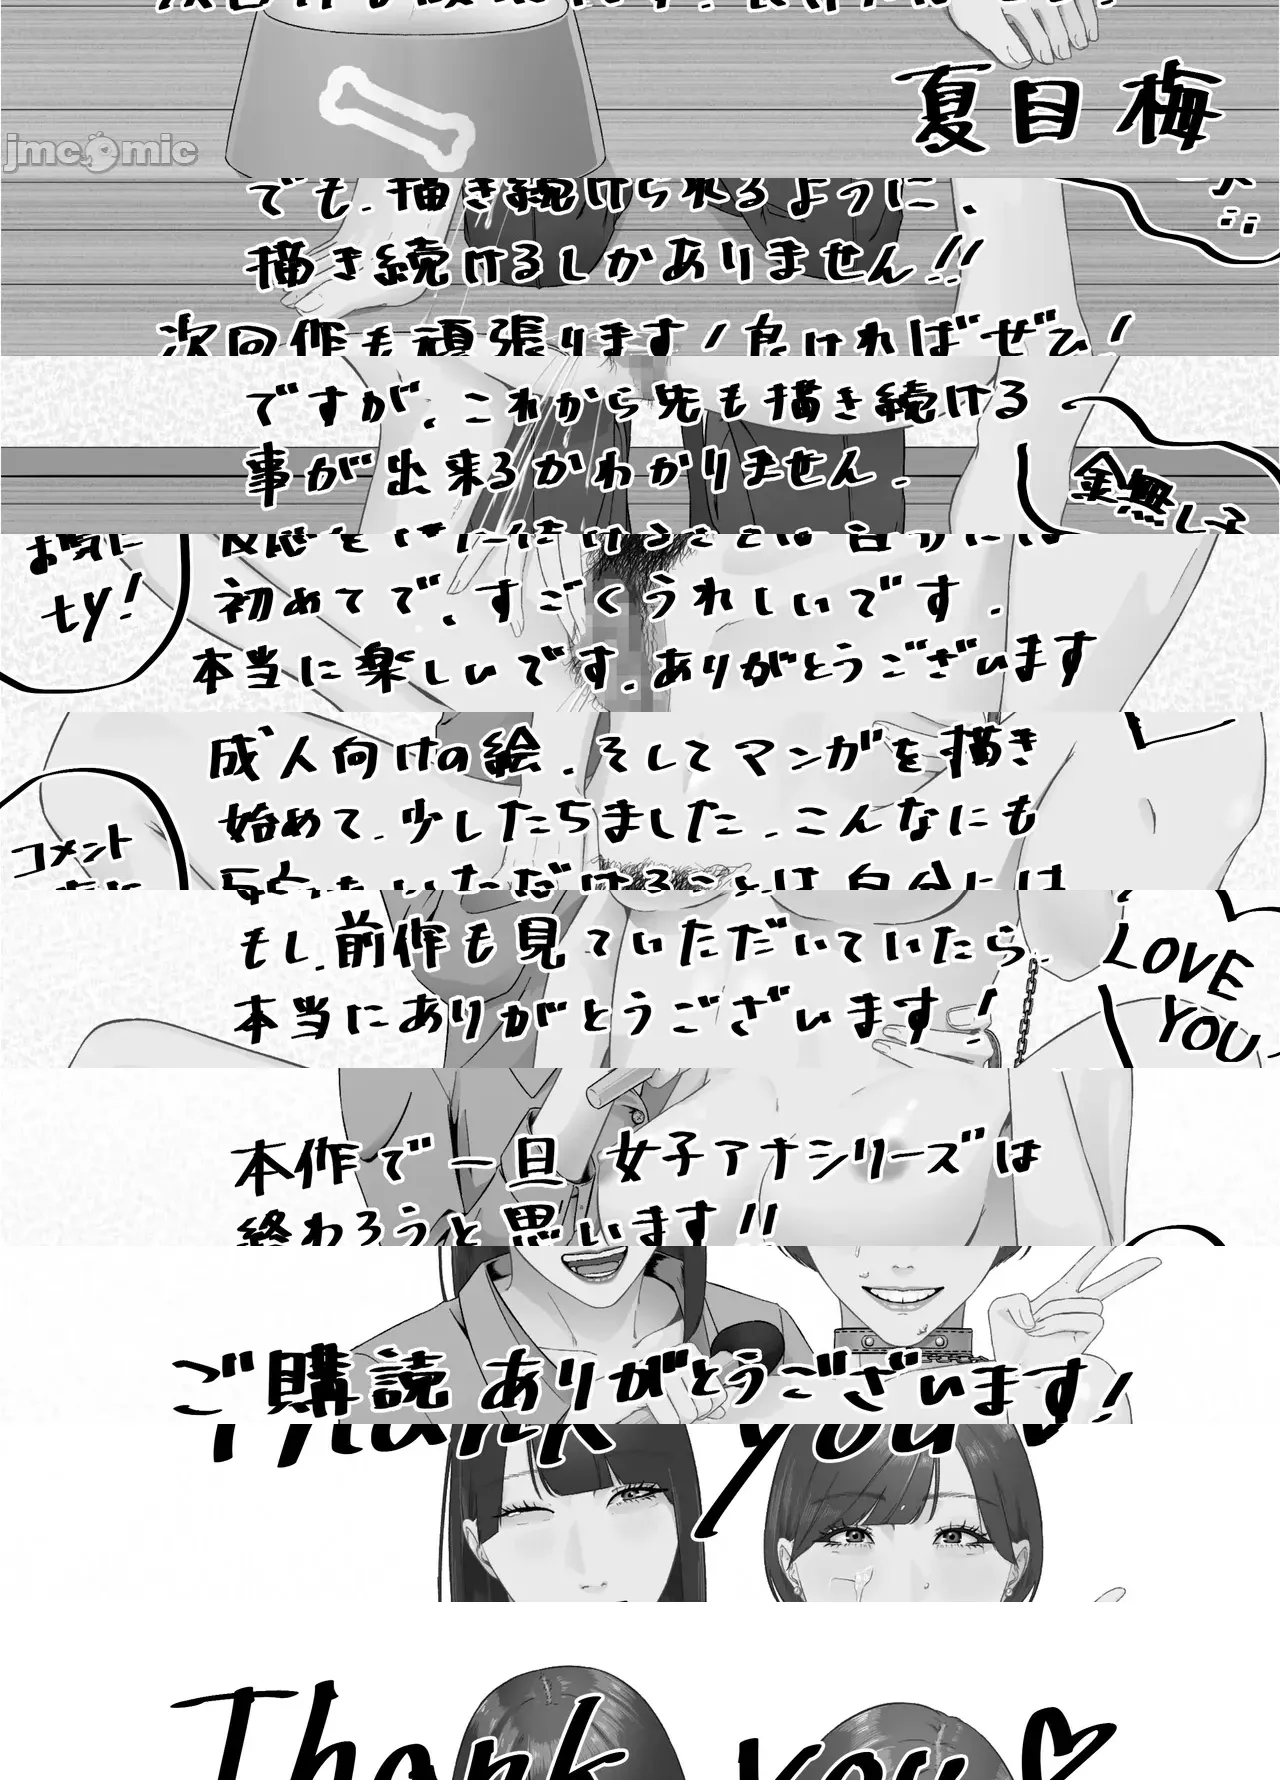 夏目梅
jmcomic
でも、描き続けられるように、
描き続けるしかありません!!
次回作も頑張ります!良ければぜひ!
ですが、これから先も描き続ける
事が出来るかわかりません。
金無し子
お気に
ty!
初めてで、すごくうれしいです。
本当に楽しいです。ありがとうございます
成人向けの絵、そしてマンガを描き
始めて、少したちました。こんなにも
コメント
反応をいただけることは自分には
もし、前作も見ていただいていたら、
本当にありがとうございます!
LOVE
YOU
本作で一旦 女子アナシリーズは
終わろうと思います!!
ご購読ありがとうございます!
Thank you
Thank you